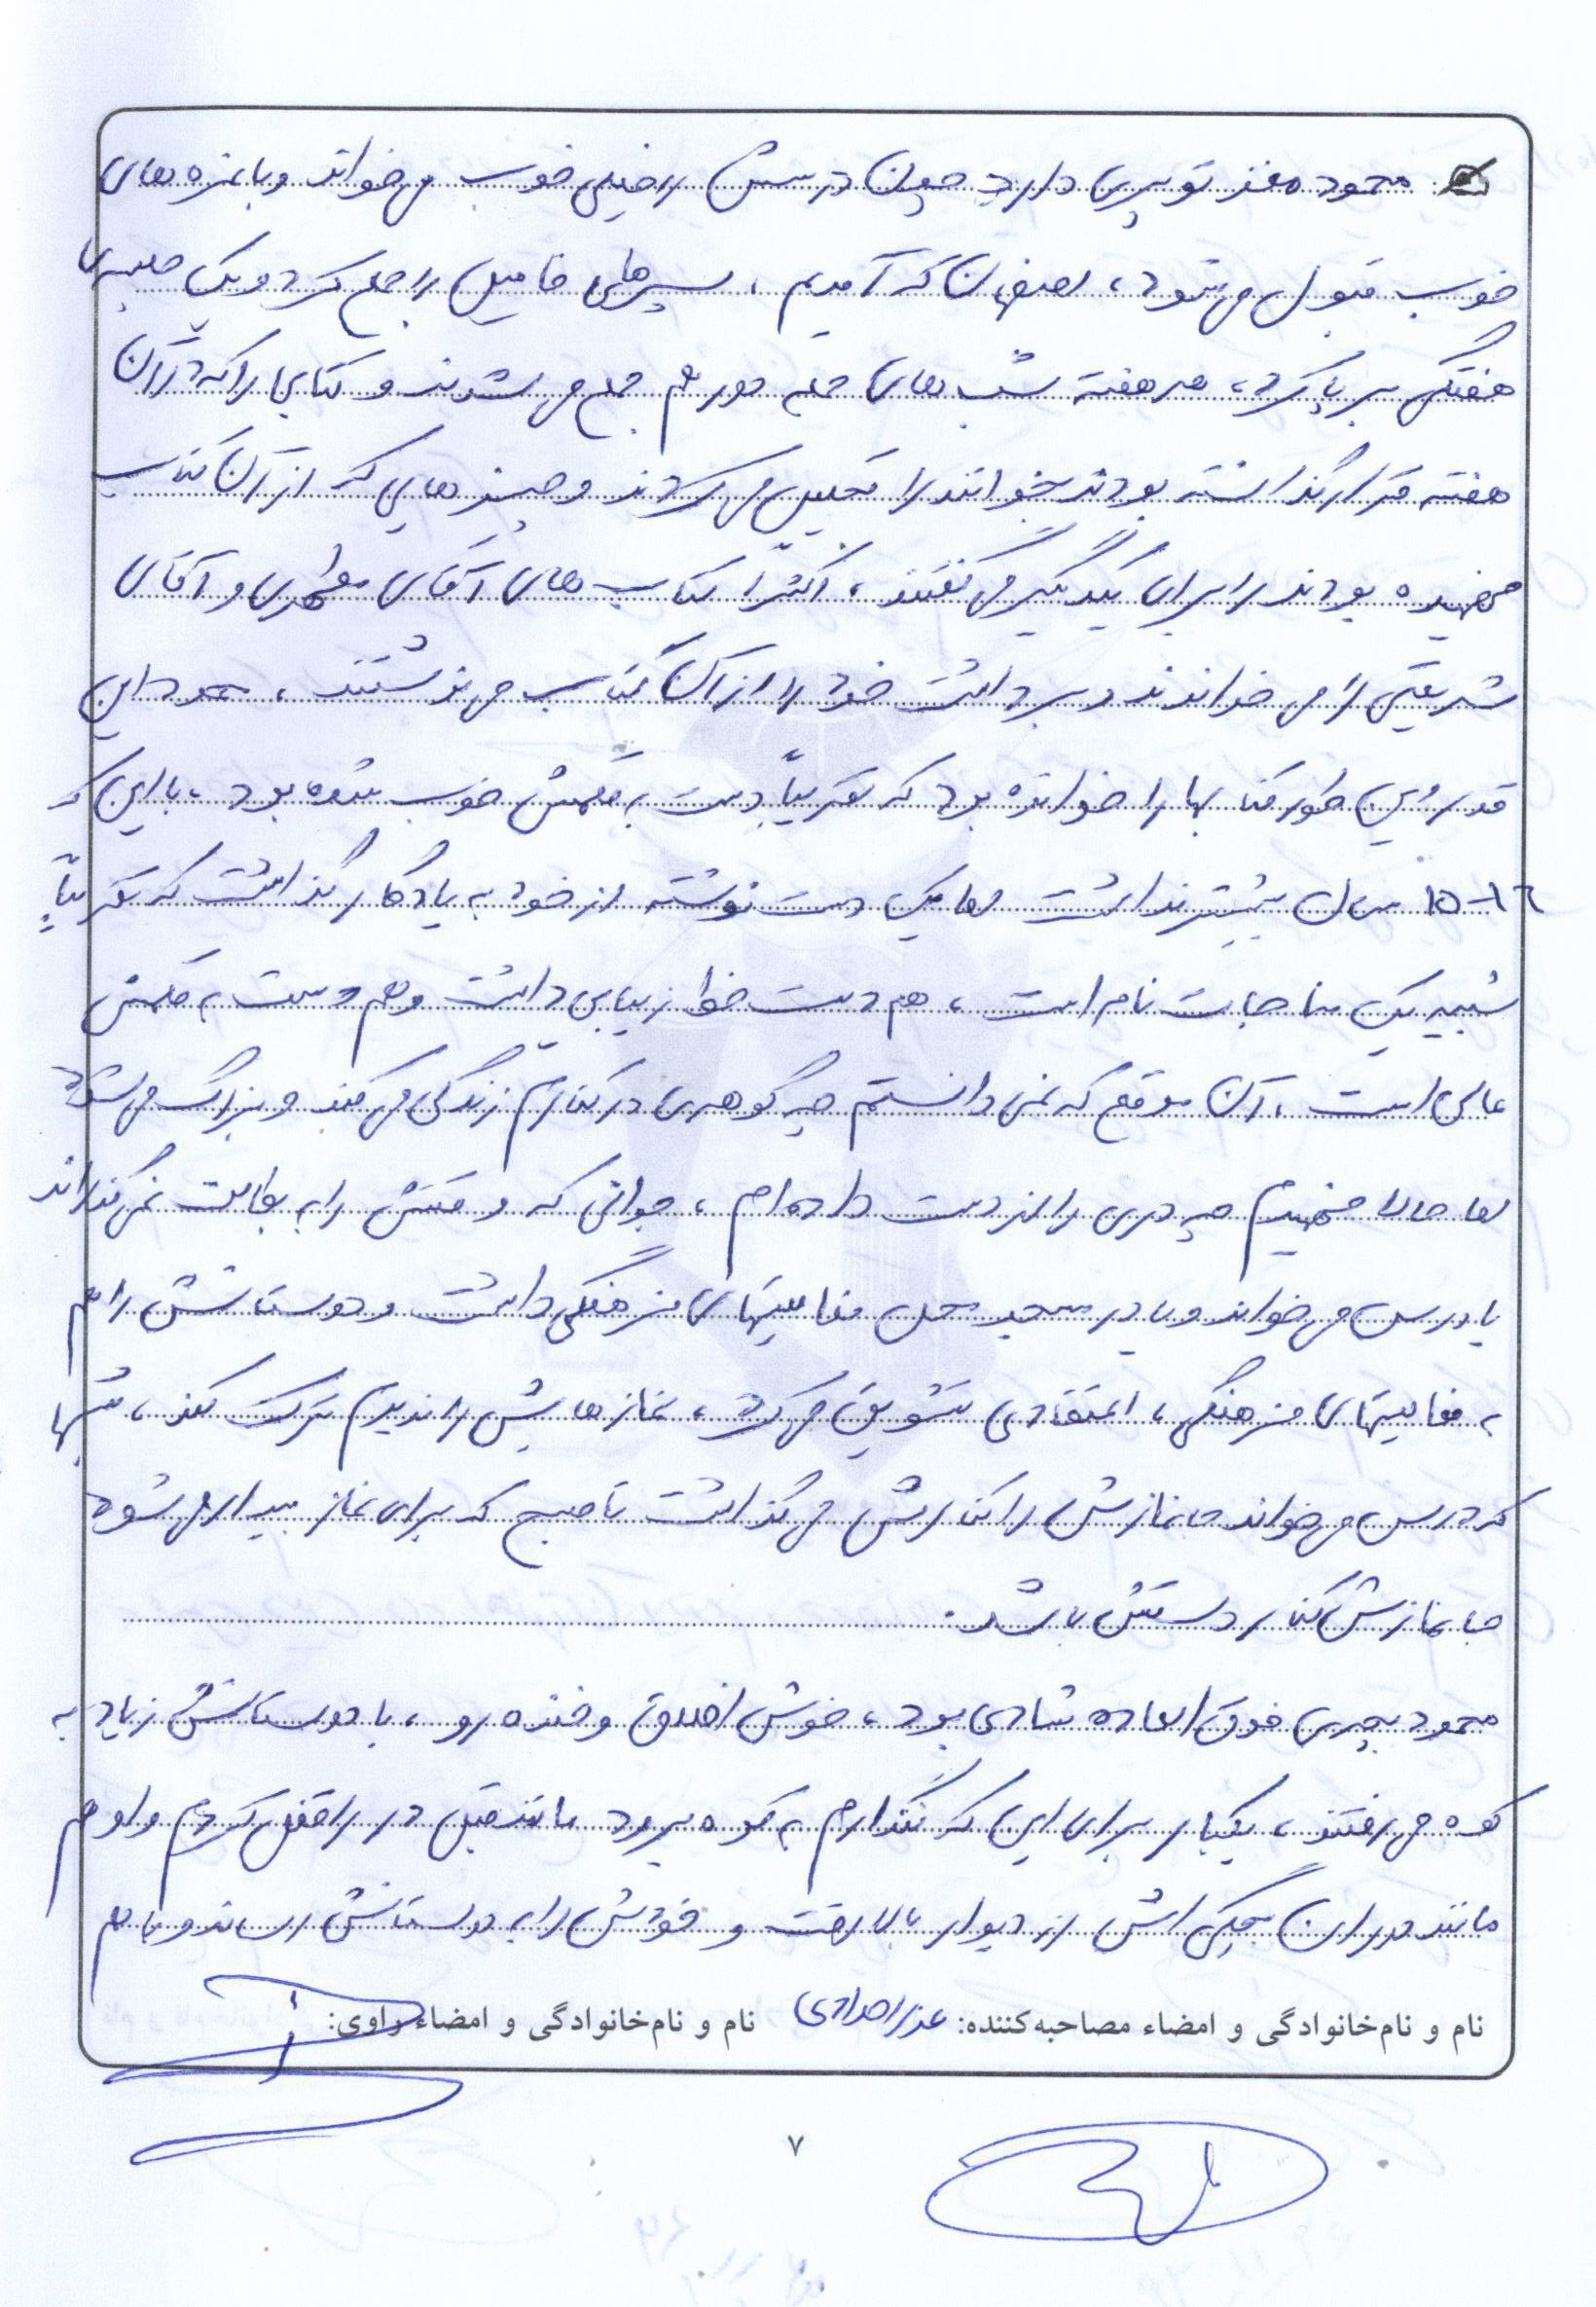 محمود مغز تو پری دارد چون درسش را خیلی خوب می‌خواند و با نمره‌های
خوب قبول می‌شود، اصفهان که آمدیم، پسرهای فامیل را جمع کرد و یک جلسه‌ی
هفتگی برپا کرد، هر هفته شب‌های جمعه دور هم جمع می‌شدند و کتابی را که در آن
هفته قرار گذاشته بودند بخوانند را تحلیل می‌کردند و چیزهایی که از آن کتاب
فهمیده بودند را برای یکدیگر می‌گفتند، اکثراً کتاب‌های آقای مطهری و آقای
شریعتی را می‌خواندند و برداشت خود را از آن کتاب می‌نوشتند، محمود این
قدر این طور کتابها را خوانده بود که تقریباً دست به قلمش خوب شده بود، با این که
۱۵-۱۶ سال بیشتر نداشت اما یک دست نوشته از خود به یادگار گذاشت که تقریباً
شبیه یک مناجات نامه است، هم دست خط زیبایی داشت و هم دست به قلمش
عالی است، آن موقع که نمی‌دانستم چه گوهری در کنارم زندگی می‌کند و بزرگ می‌شود
اما حالا فهمیدم چه دری را از دست داده‌ام، جوانی که وقتش را به بطالت نمی‌گذراند
یا درس می‌خواند و یا در مسجد محل فعالیتهای فرهنگی داشت و دوستانش را هم
به فعالیتهای فرهنگی، اعتقادی تشویق می‌کرد، نمازهایش را ندیدم ترک کند، شبها
که درس می‌خواند جانمازش را کنارش می‌گذاشت تا صبح که برای نماز بیدار می‌شود
جانمازش کنار دستش باشد.
محمود بچه‌ی فوق العاده شادی بود، خوش اخلاق و خنده رو، با دوستانش زیاد به
کوه می‌رفتند، یکبار برای این که نگذارم به کوه برود مانند قبل در را قفل کردم و او هم
مانند دوران بچگی‌اش از دیوار بالا رفت و خودش را به دوستانش رساند و با هم
نام و نام‌خانوادگی و امضاء مصاحبه‌کننده: نام و نام‌خانوادگی و امضاء راوی:
۷